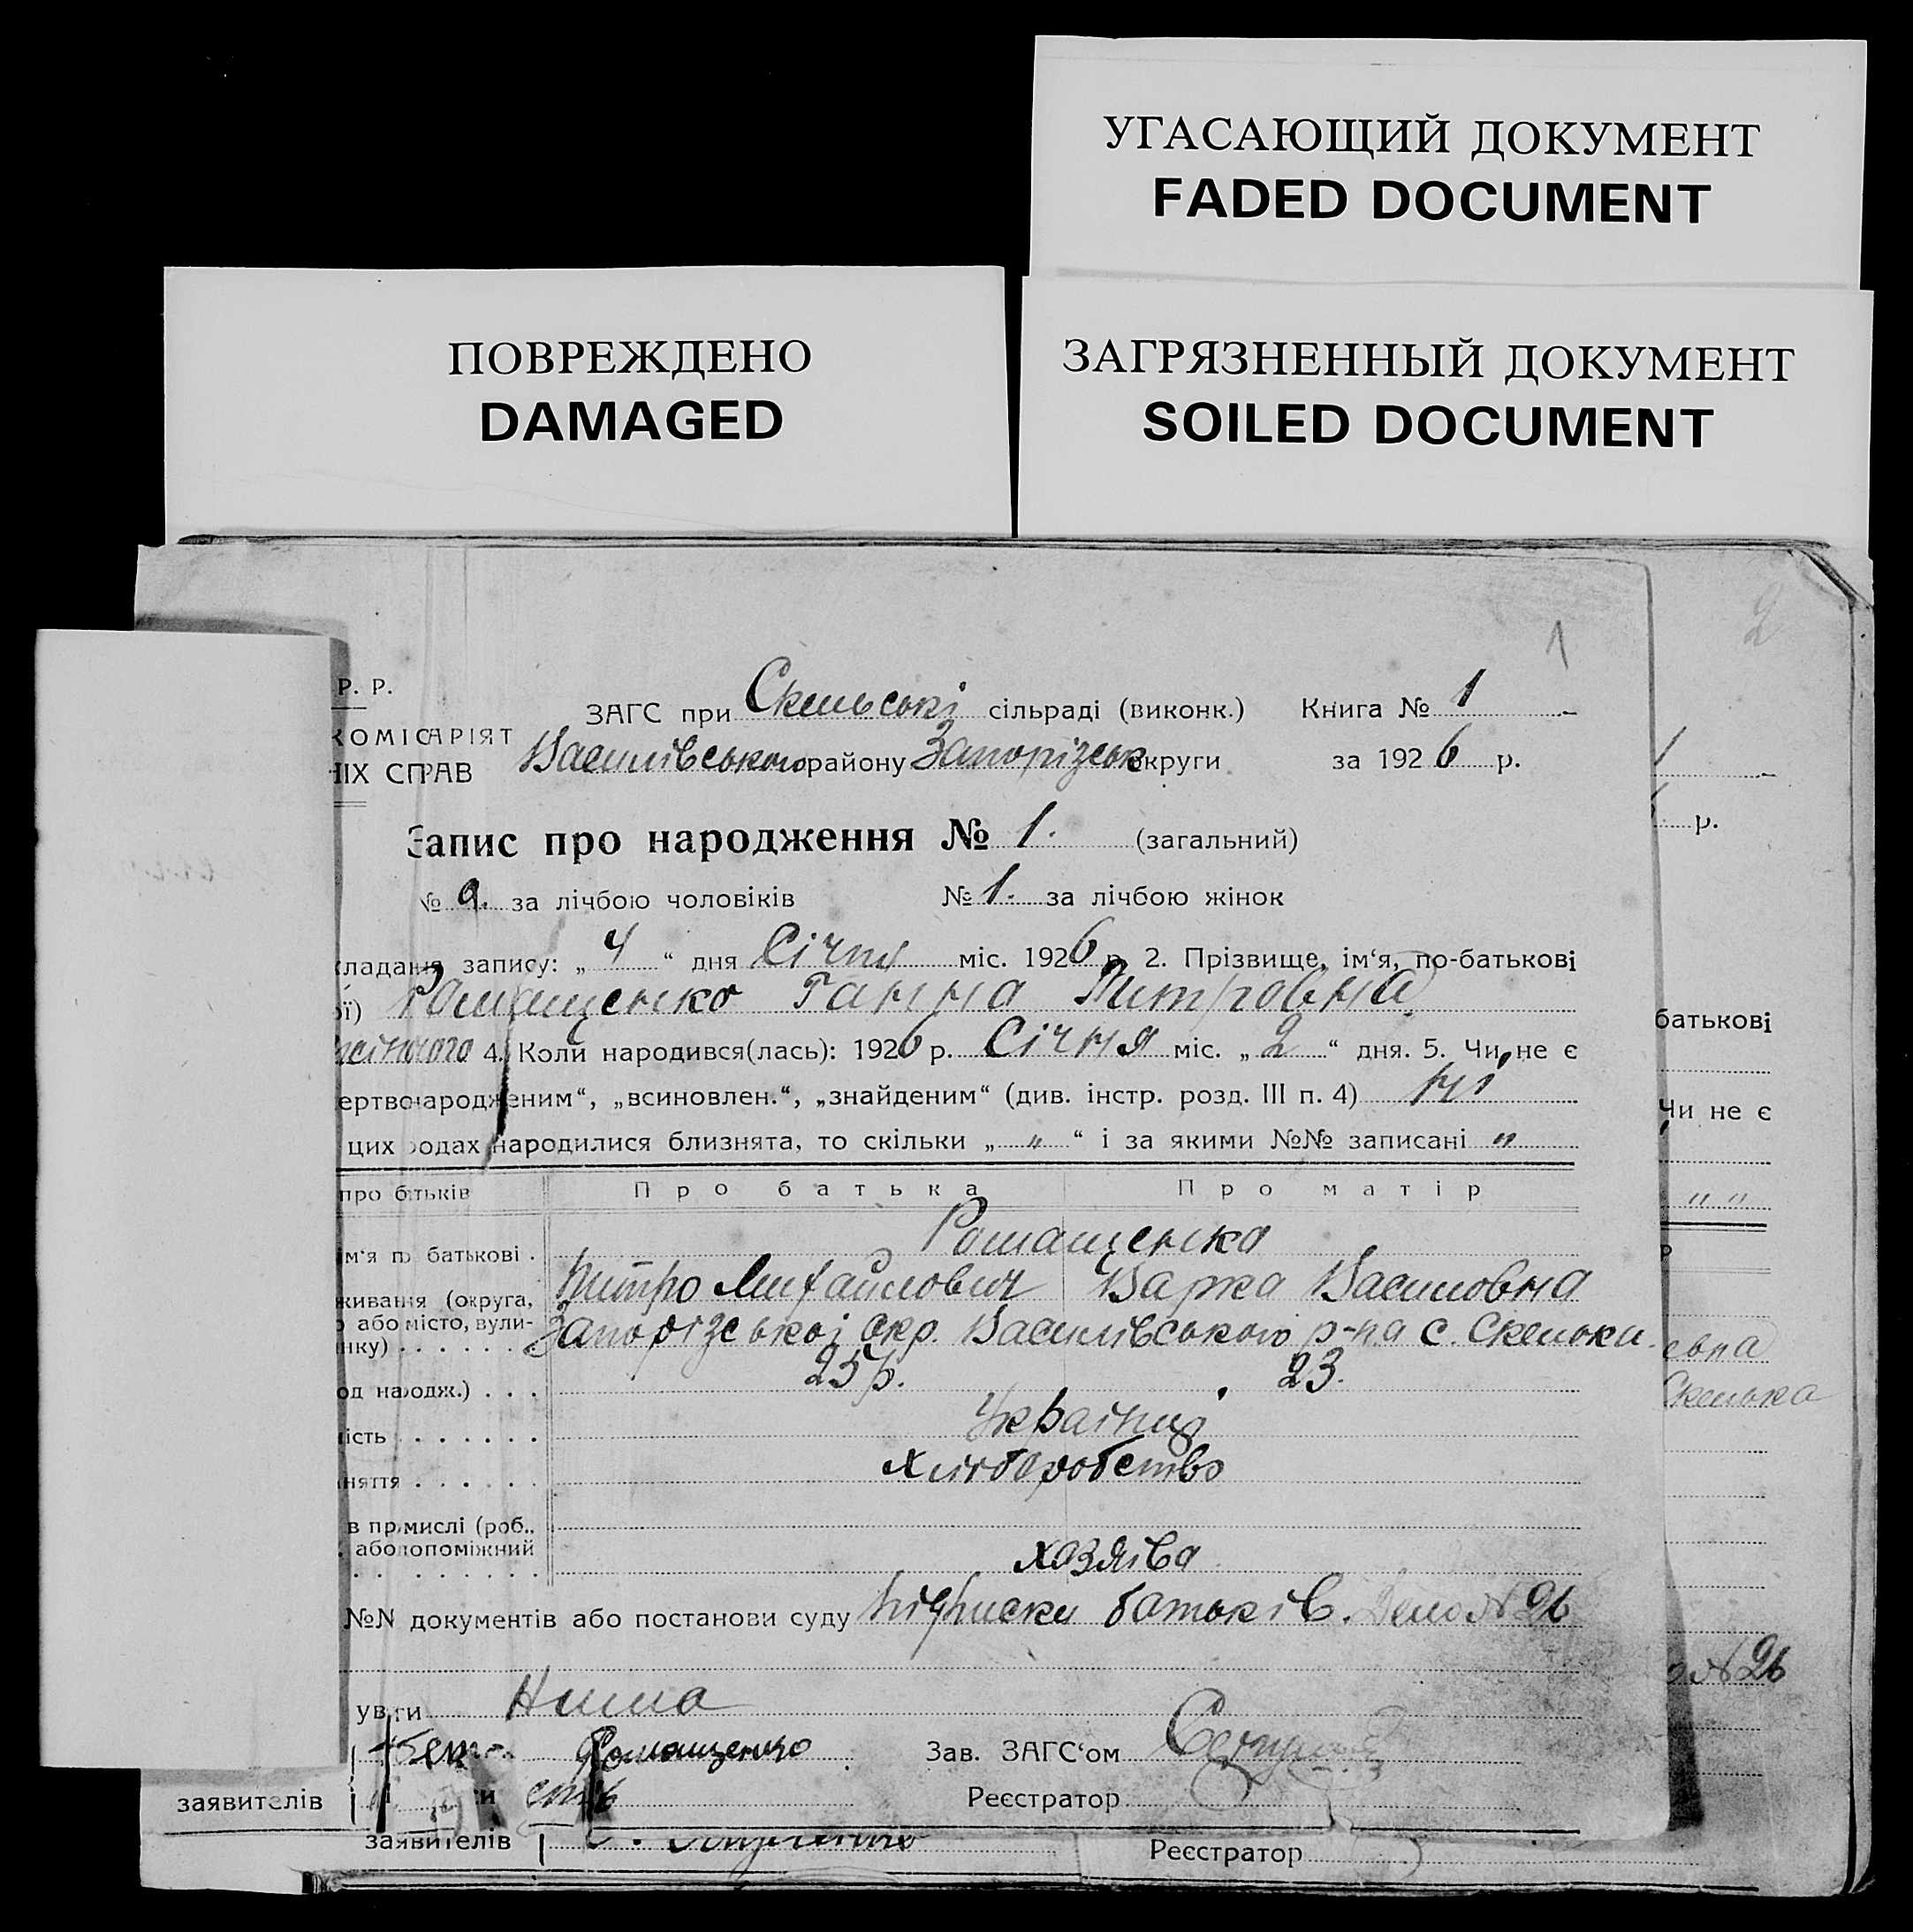 УГАСАЮЩИЙ ДОКУМЕНТ
FADED DOCUMENT
ПОВРЕЖДЕНО
DAMAGED
ЗАГРЯЗНЕННЫЙ ДОКУМЕНТ
SOILED DOCUMENT
2
1
Р. Р.
ЗАГС при Скельські сільраді (виконк.) Книга № 1
КОМІСАРІЯТ
НІХ СПРАВ
Василівського району Запорізськ округи за 1926 р.
Запис про народження № 1. (загальний)
№ за лічбою чоловіків № 1. за лічбою жінок
кладання запису: „ 4 “ дня Січня міс. 1926 р. 2. Прізвище, ім‘я, по-батькові
ої) Ромащенко Ганна Митровна
4. Коли народився(лась): 1926 р. Січня міс. „ 2 “ дня. 5. Чи не є
ертвонародженим“, „всиновлен.“, „знайденим“ (див. інстр. розд. III п. 4) ні
цих родах народилися близнята, то скільки „ " “ і за якими №№ записані "
про батьків Про батька Про матір
Ромащенка
ім‘я по батькові . Митро Михайлович Варка Василовна
живання (округа,
або місто, вули-
нку) . . . . . . Запорізської окр. Василівського р-на с. Скельки
од народж.) . . . 25 р. 23.
ість . . . . . . Українці
няття . . . . . . хліборобство
в промислі (роб..
або допоміжний
. . . . . . . . хазяіва
№N документів або постанови суду підписки батьків. Дело № 26
уваги Нима
Ромащенко Зав. ЗАГС‘ом
заявителів Реєстратор
заявителів Реєстратор
1
р.
батькові
Чи не є
" "
евна
Скелька
№ 26